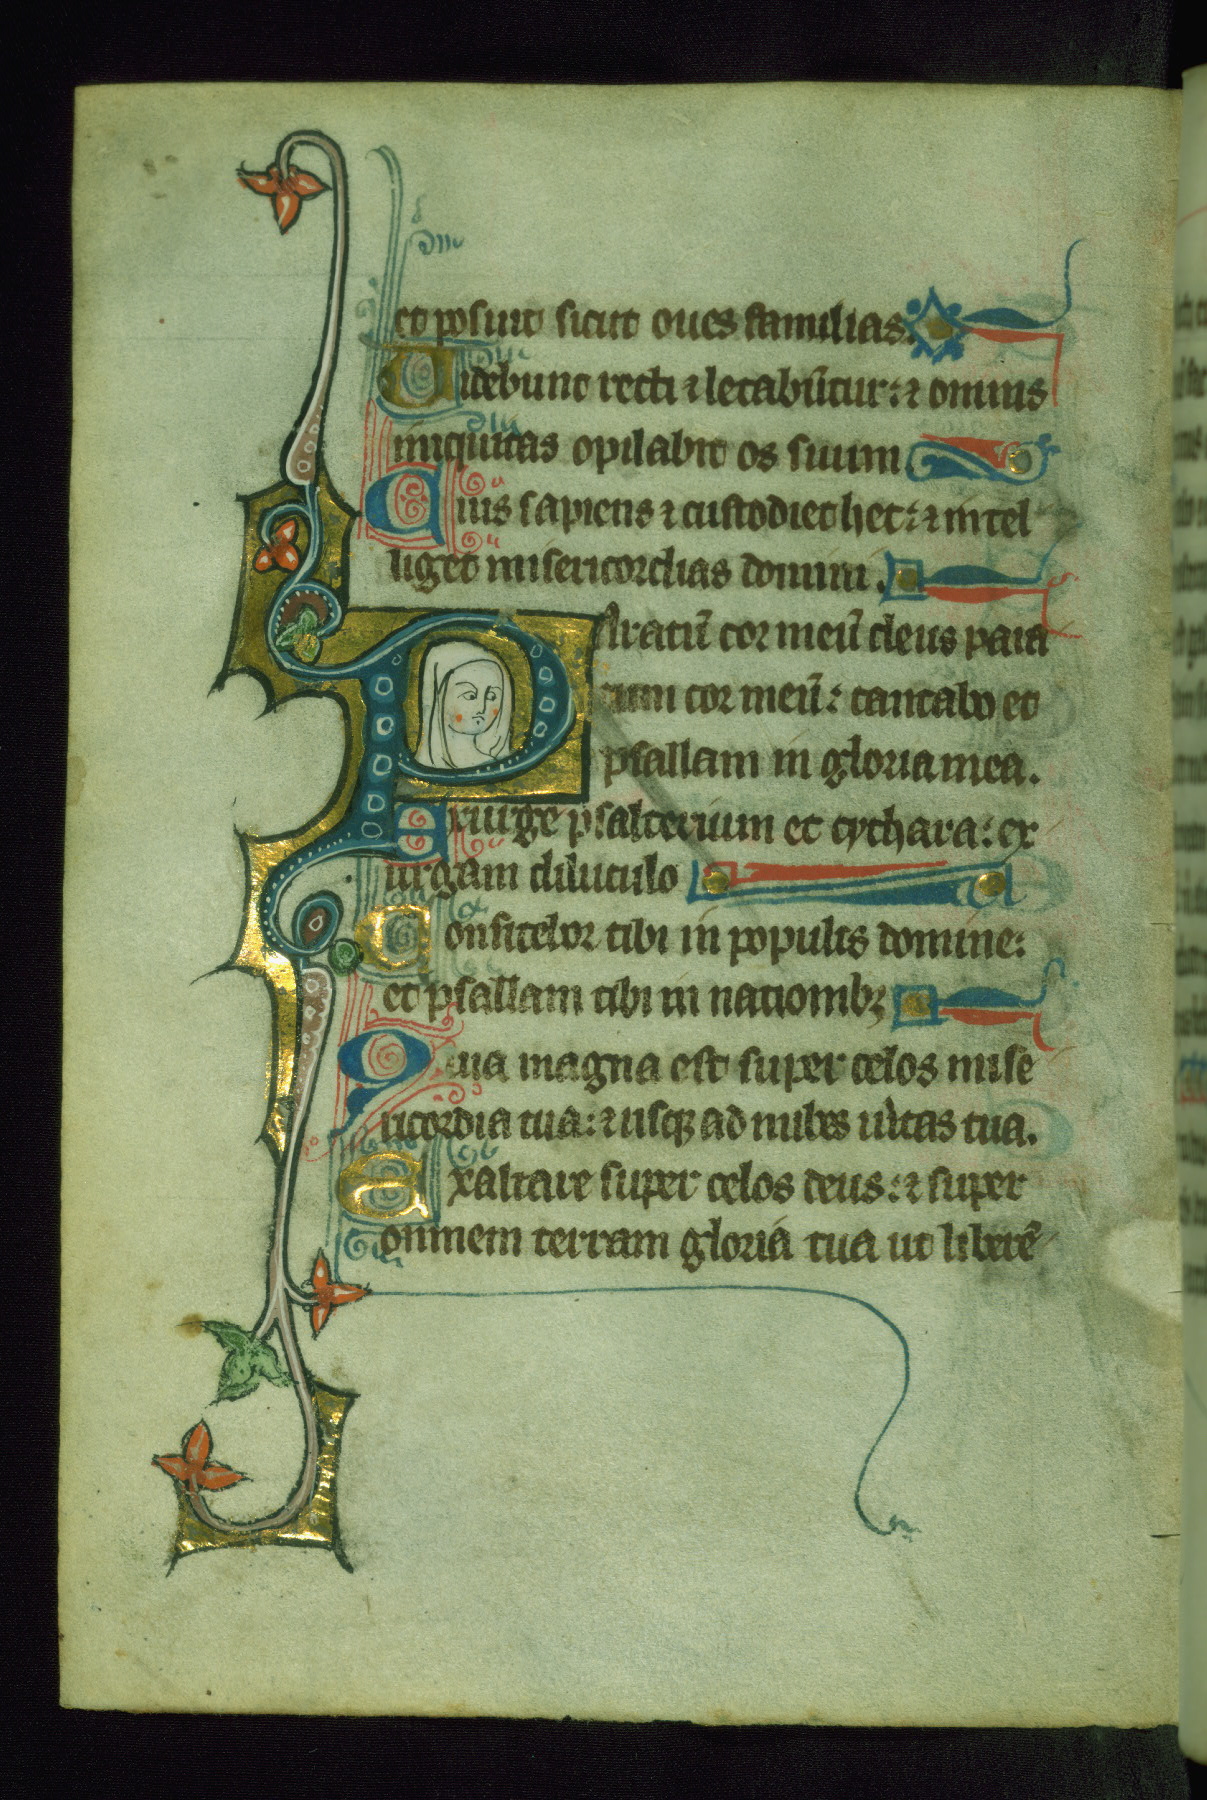 et posuit sicut oues familias.
Uidebunt recti ⁊ letabūtur: ⁊ omnis
iniquitas opilabit os suum
Quis sapiens ⁊ custodiet hec: ⁊ intel
liget misericordias domini.
Paratū cor meū deus para
tum cor meū: cantabo et
psallam in gloria mea.
Exurge psalterium et cythara: ex
urgam diluculo
Confitebor tibi in populis domine:
et psallam tibi in nationibꝫ
Quia magna est super celos mise
ricordia tua: ⁊ usqꝫ ad nubes ūitas tua.
Exaltare super celos deus: ⁊ super
omnem terram gloria tua ut liberē